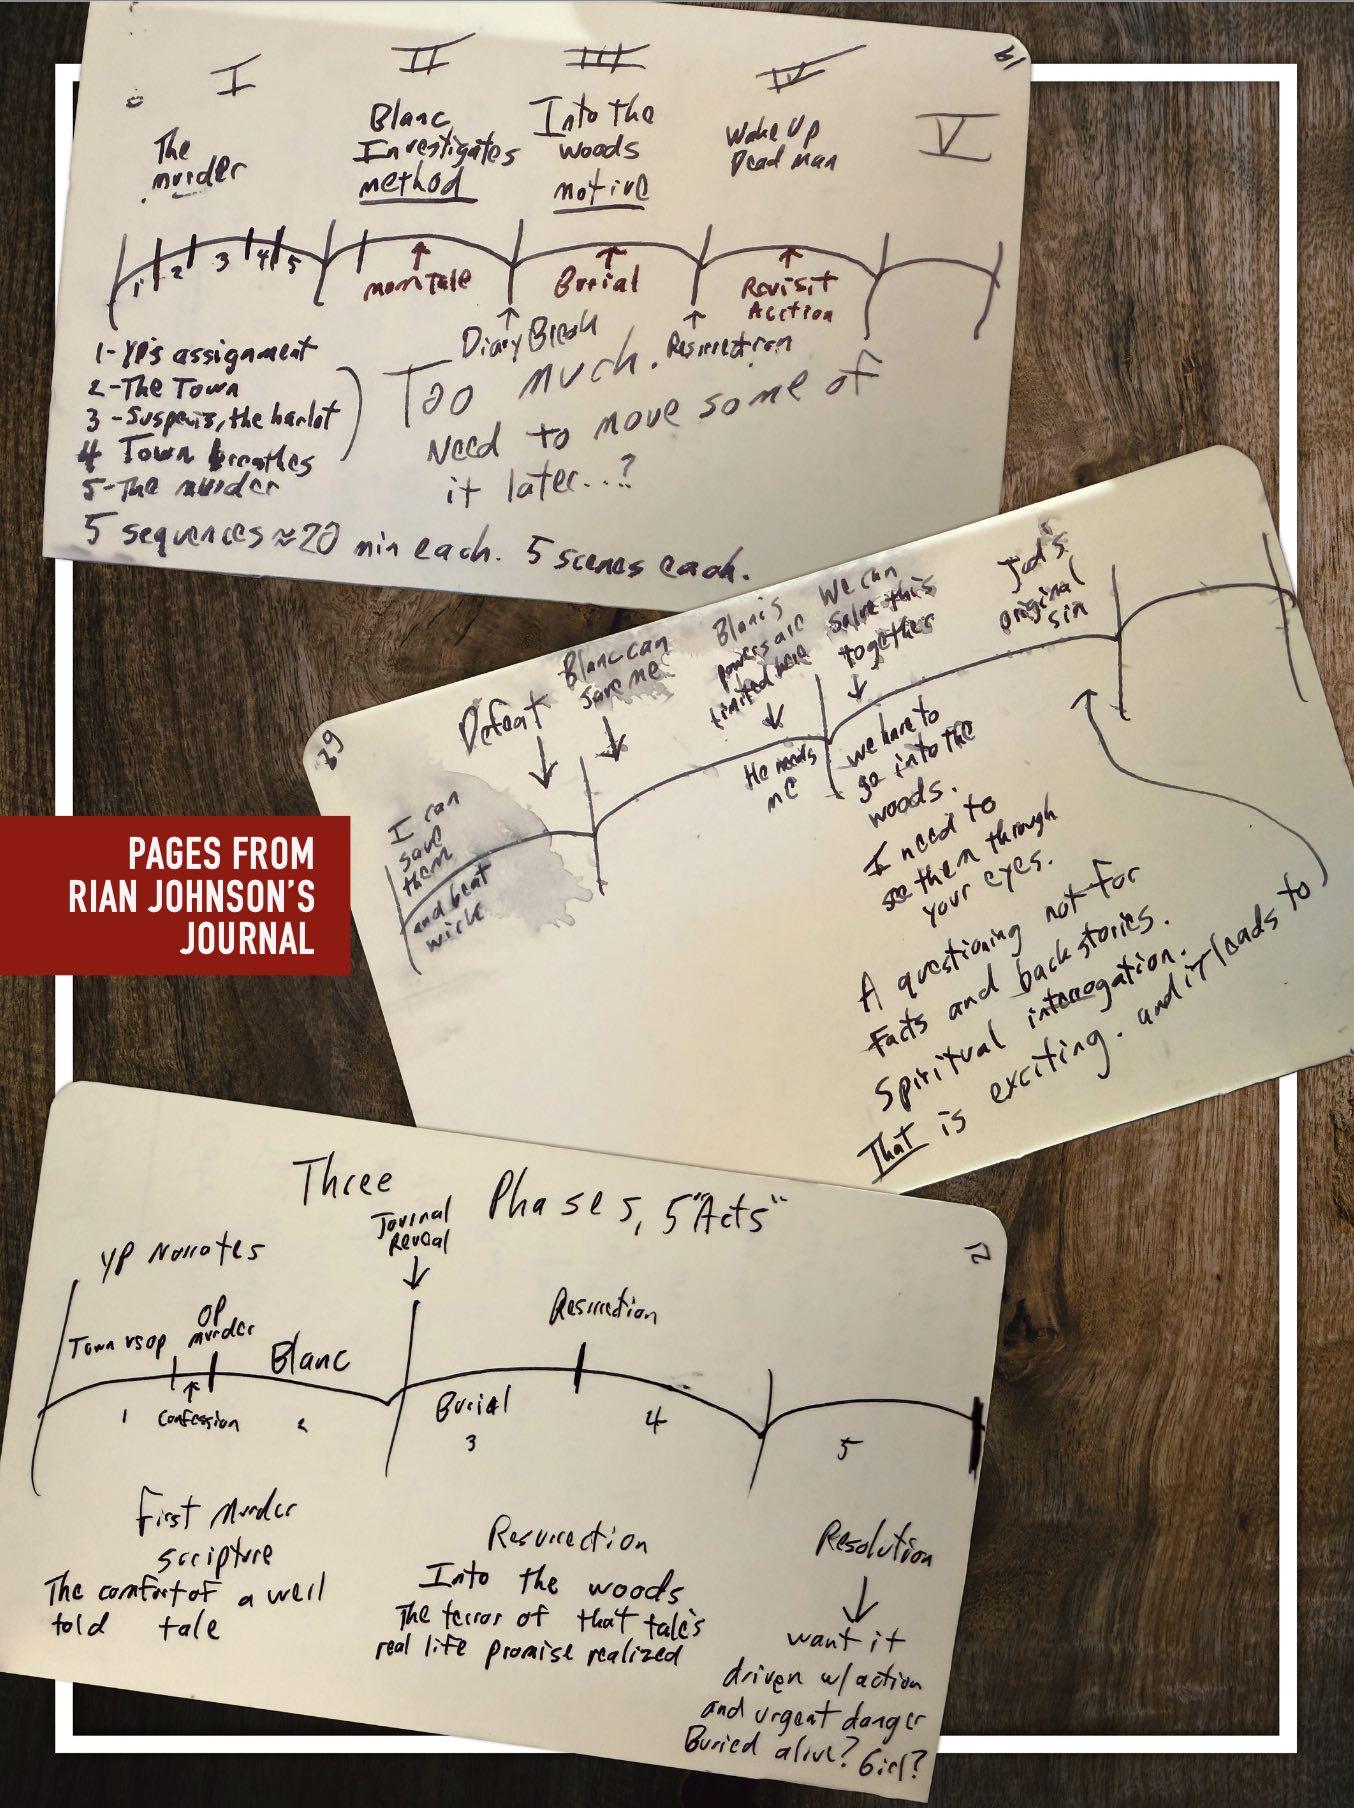 19
I
II
III
IV
V
The
murder
Blanc
Investigates
method
Into the
woods
motive
Wake Up
Dead man
1 2 3 4 5
mom Tale
Burial
Revisit
Diary Break
Resurrection
1-YP's assignment
2-The Town
3-Suspects, the harlot
4 Town breathes
5-The murder
Too much.
Need to move some of
it later...?
5 sequences ≈ 20 min each. 5 scenes each.
I can
save
them
and beat
wick
Defeat
Blanc can
save me
Blanc's
powers are
limited here
He needs
me
We can
solve this
together
Jud's
original
sin
we have to
go into the
woods.
I need to
see them through
your eyes.
A questioning not for
facts and backstories.
Spiritual interrogation.
That is exciting. and it leads to
PAGES FROM
RIAN JOHNSON'S
JOURNAL
Three Phases, 5 "Acts"
YP Narrates
Journal
Reveal
Town vs OP
OP
murder
Blanc
Resurrection
1
Confession
2
Burial
3
4
5
First Murder
scripture
The comfort of a well
told tale
Resurrection
Into the woods
The terror of that tale's
real life promise realized
Resolution
want it
driven w/ action
and urgent danger
Buried alive? Girl?